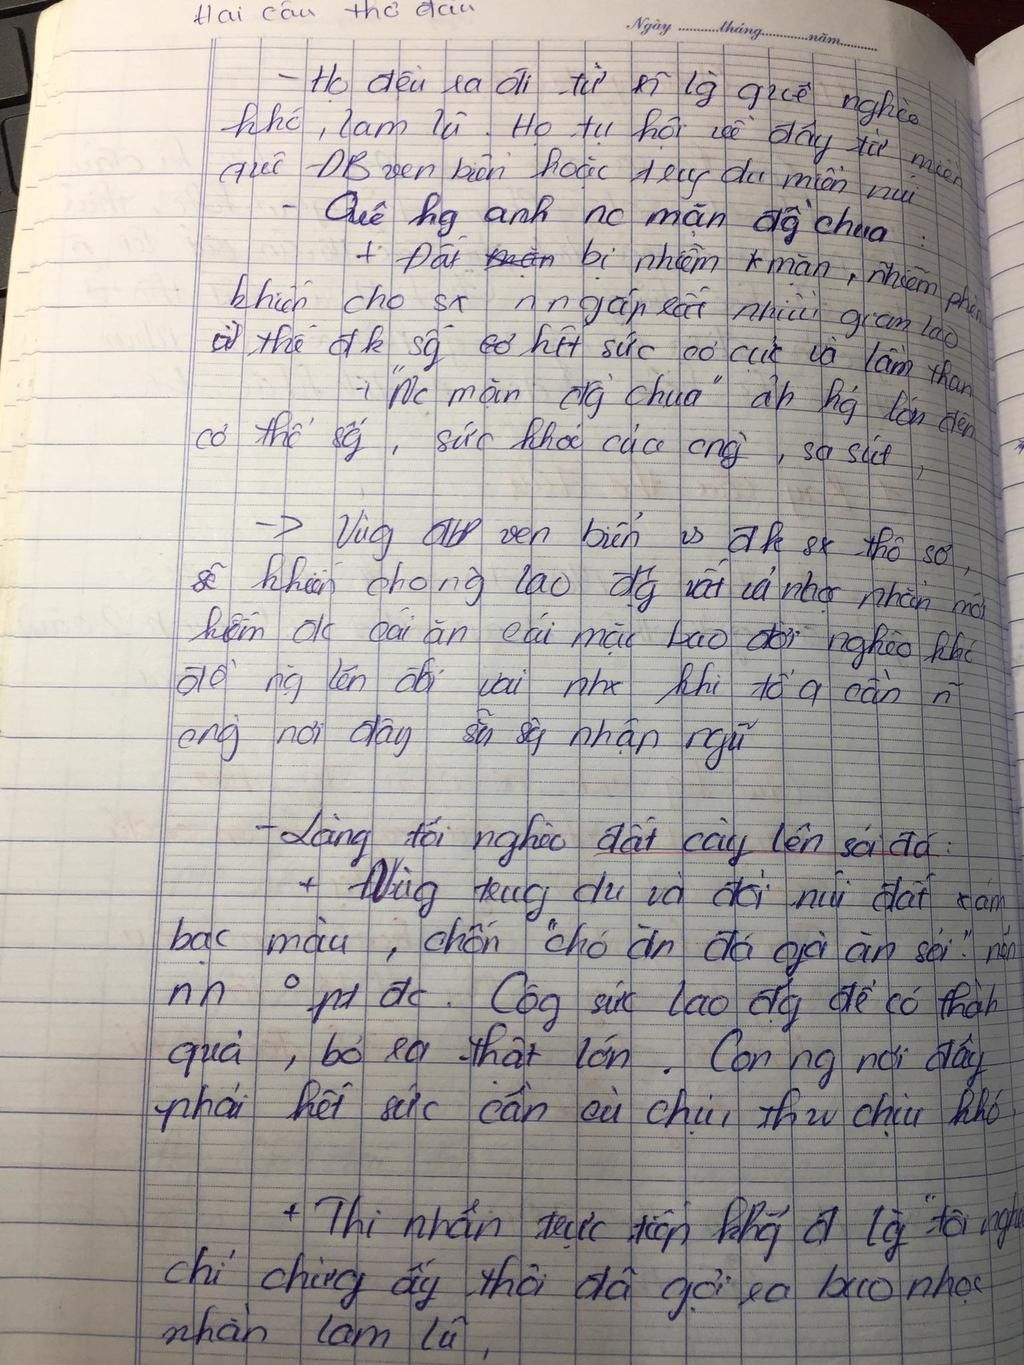 Hai câu thơ đầu
Ngày ...........tháng...........năm...........
- Họ đều ra đi từ ~ lg quê nghèo
khó, lam lũ. Họ tụ hội về đây từ miền
quê ĐB ven biển hoặc trug du miền núi
- Quê hg anh nc mặn đg chua :
+ Đất bị nhiễm mặn, nhiễm phèn
khiến cho sx nn gặp rất nhiều gian lao
vì thế đk sg hết sức cơ cực và lầm than
+ "Nc mặn đg chua" ảh hg lớn đến
cơ thể sg, sức khoẻ của cng, sa sút,
-> Vùg ĐB ven biển vs đk sx thô sơ,
khiến cho ng lao độg vất vả nhọc nhằn mới
kiếm đc cái ăn cái mặc bao đời nghèo khó
đề ng lên đôi vai nhx khi tổ q cần ~
cng nơi đây sẵn sg nhập ngũ
- Làng tôi nghèo đất cày lên sỏi đá :
+ Vùg trug du và đồi núi đất xám
bạc màu, chốn "chó ăn đá gà ăn sỏi" nên
nn ° pt đc. Côg sức lao độg để có thàh
quả, bỏ ra thật lớn. Con ng nơi đây
phải hết sức cần cù chịu thw chịu khó
+ Thi nhân trực tiếp khg đ lg "tôi nghèo
chỉ chừg ấy thôi đã gợi ra bao nhọc
nhằn lam lũ,